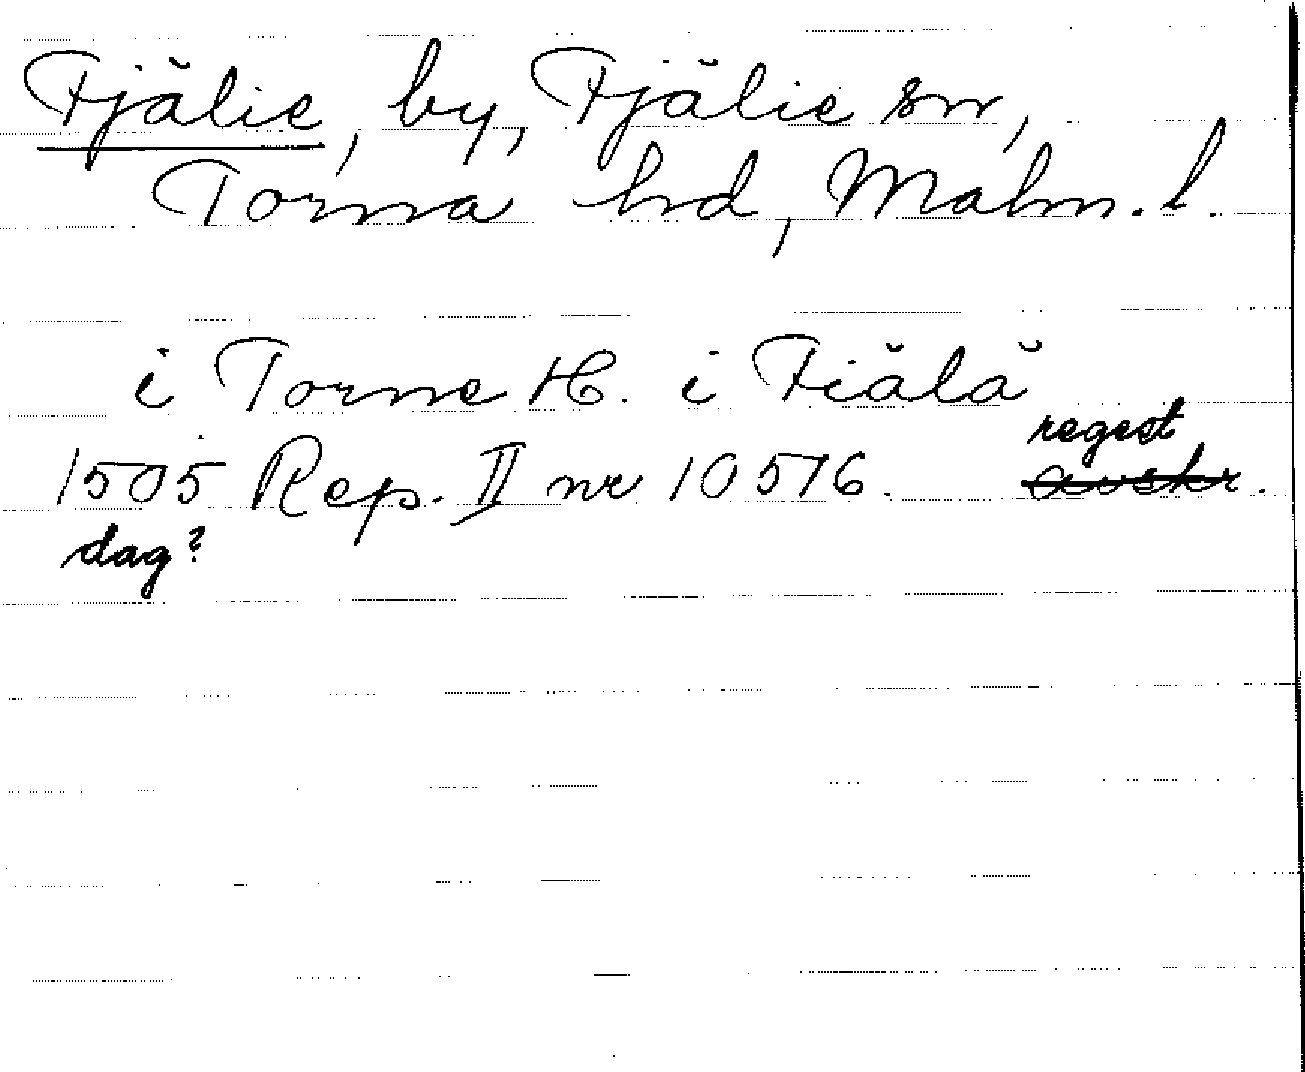 Fjälie, by, Fjälie sn,
Torna hd, Malm. l.
i Torne H. i Fiälä
regest
1505 Rep. II nr 10576. avskr.
dag?